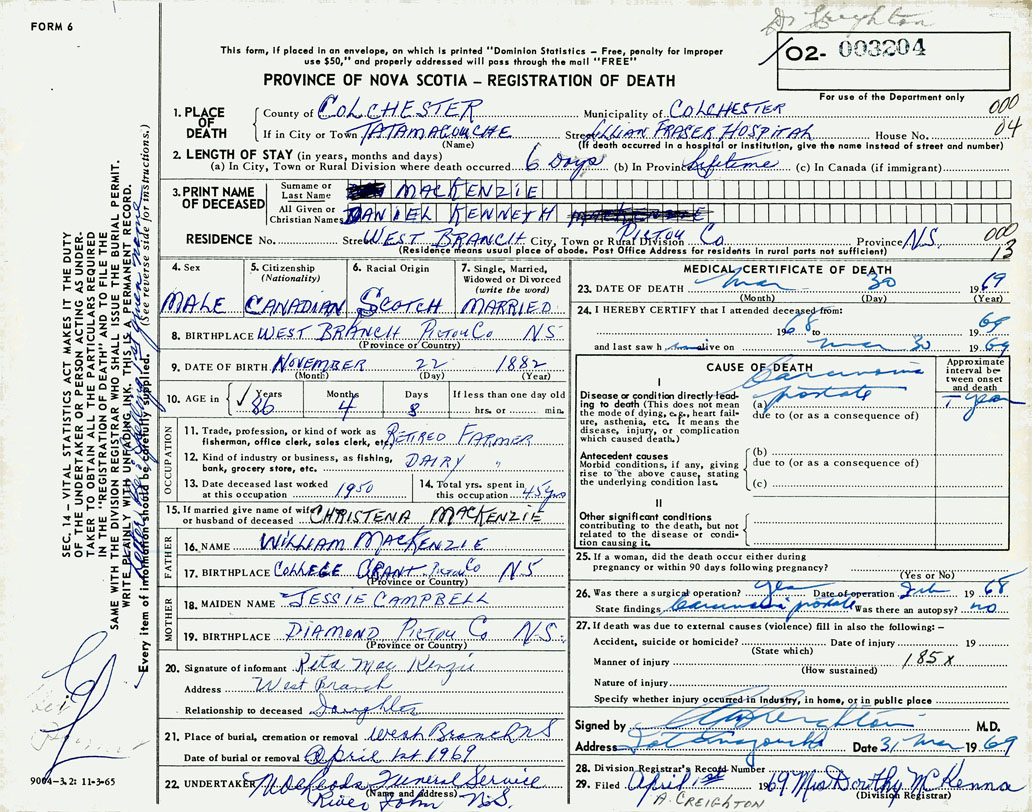 FORM 6
Dr Creighton
This form, if placed in an envelope, on which is printed "Dominion Statistics – Free, penalty for improper
use $50," and properly addressed will pass through the mail "FREE"
02- 003204
PROVINCE OF NOVA SCOTIA – REGISTRATION OF DEATH
For use of the Department only
1. PLACE OF DEATH
County of COLCHESTER Municipality of COLCHESTER 000
If in City or Town TATAMAGOUCHE Street LILLIAN FRASER HOSPITAL House No. 04
(Name) (If death occurred in a hospital or institution, give the name instead of street and number)
2. LENGTH OF STAY (in years, months and days)
(a) In City, Town or Rural Division where death occurred 6 Days (b) In Province Lifetime (c) In Canada (if immigrant)
3. PRINT NAME OF DECEASED
Surname or Last Name MACKENZIE
All Given or Christian Names DANIEL KENNETH MACKENZIE
RESIDENCE No. Street WEST BRANCH City, Town or Rural Division PICTOU Co. Province N.S. 000
(Residence means usual place of abode. Post Office Address for residents in rural parts not sufficient) 13
4. Sex MALE
5. Citizenship (Nationality) CANADIAN
6. Racial Origin SCOTCH
7. Single, Married, Widowed or Divorced (write the word) MARRIED
8. BIRTHPLACE WEST BRANCH PICTOU Co NS
(Province or Country)
9. DATE OF BIRTH NOVEMBER 22 1882
(Month) (Day) (Year)
10. AGE in Years Months Days If less than one day old
86 4 8 hrs. or min.
OCCUPATION
11. Trade, profession, or kind of work as
fisherman, office clerk, sales clerk, etc. RETIRED FARMER
12. Kind of industry or business, as fishing,
bank, grocery store, etc. DAIRY "
13. Date deceased last worked
at this occupation 1950
14. Total yrs. spent in
this occupation 45 yrs
15. If married give name of wife
or husband of deceased CHRISTENA MACKENZIE
FATHER
16. NAME WILLIAM MACKENZIE
17. BIRTHPLACE COLLEGE GRANT Pictou Co NS
(Province or Country)
MOTHER
18. MAIDEN NAME JESSIE CAMPBELL
19. BIRTHPLACE DIAMOND PICTOU Co N.S.
(Province or Country)
20. Signature of informant Reta Mac Kenzie
Address West Branch
Relationship to deceased Daughter
21. Place of burial, cremation or removal West Branch NS
Date of burial or removal April 1st 1969
22. UNDERTAKER Macleods Funeral Service
(Name and address)
River John N.S.
MEDICAL CERTIFICATE OF DEATH
23. DATE OF DEATH Mar 30 1969
(Month) (Day) (Year)
24. I HEREBY CERTIFY that I attended deceased from:
1968 to 69
and last saw h alive on Mar 30 1969
CAUSE OF DEATH
Approximate interval between onset and death
I
Disease or condition directly leading to death (This does not mean
the mode of dying, e.g., heart failure, asthenia, etc. It means the
disease, injury, or complication
which caused death.)
Carcinoma
(a) prostate
year
due to (or as a consequence of)
Antecedent causes
Morbid conditions, if any, giving
rise to the above cause, stating
the underlying condition last.
(b)
due to (or as a consequence of)
(c)
II
Other significant conditions
contributing to the death, but not
related to the disease or condition causing it.
25. If a woman, did the death occur either during
pregnancy or within 90 days following pregnancy?
(Yes or No)
26. Was there a surgical operation? yes Date of operation Feb 1968
State findings Carcinoma prostate Was there an autopsy? no
27. If death was due to external causes (violence) fill in also the following: –
Accident, suicide or homicide? Date of injury 19
(State which)
Manner of injury 185x
(How sustained)
Nature of injury
Specify whether injury occurred in Industry, in home, or in public place
Signed by Creighton M.D.
Address Tatamagouche Date 31 Mar 1969
28. Division Registrar's Record Number
29. Filed April 1st 1969 Mrs Dorothy McKenna
(Division Registrar)
A. CREIGHTON
SEC. 14 – VITAL STATISTICS ACT MAKES IT THE DUTY
OF THE UNDERTAKER OR PERSON ACTING AS UNDER-
TAKER TO OBTAIN ALL THE PARTICULARS REQUIRED
IN THE "REGISTRATION OF DEATH" AND TO FILE THE
SAME WITH THE DIVISION REGISTRAR WHO SHALL ISSUE THE BURIAL PERMIT.
WRITE PLAINLY WITH UNFADING INK, THIS IS A PERMANENT RECORD.
Every item of information should be carefully supplied. (See reverse side for instructions.)
9004-3.2: 11-3-65